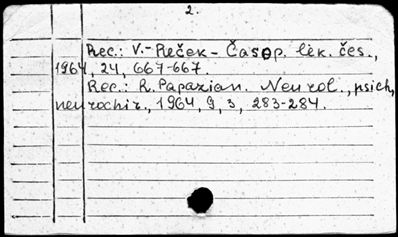 2.
Rec.: V.-Reček - Časop. lék. čes.,
1964, 24, 667-667.
Rec.: R. Papazian. Neurol., psich,
neurochir., 1964, 9, 3, 283-284.